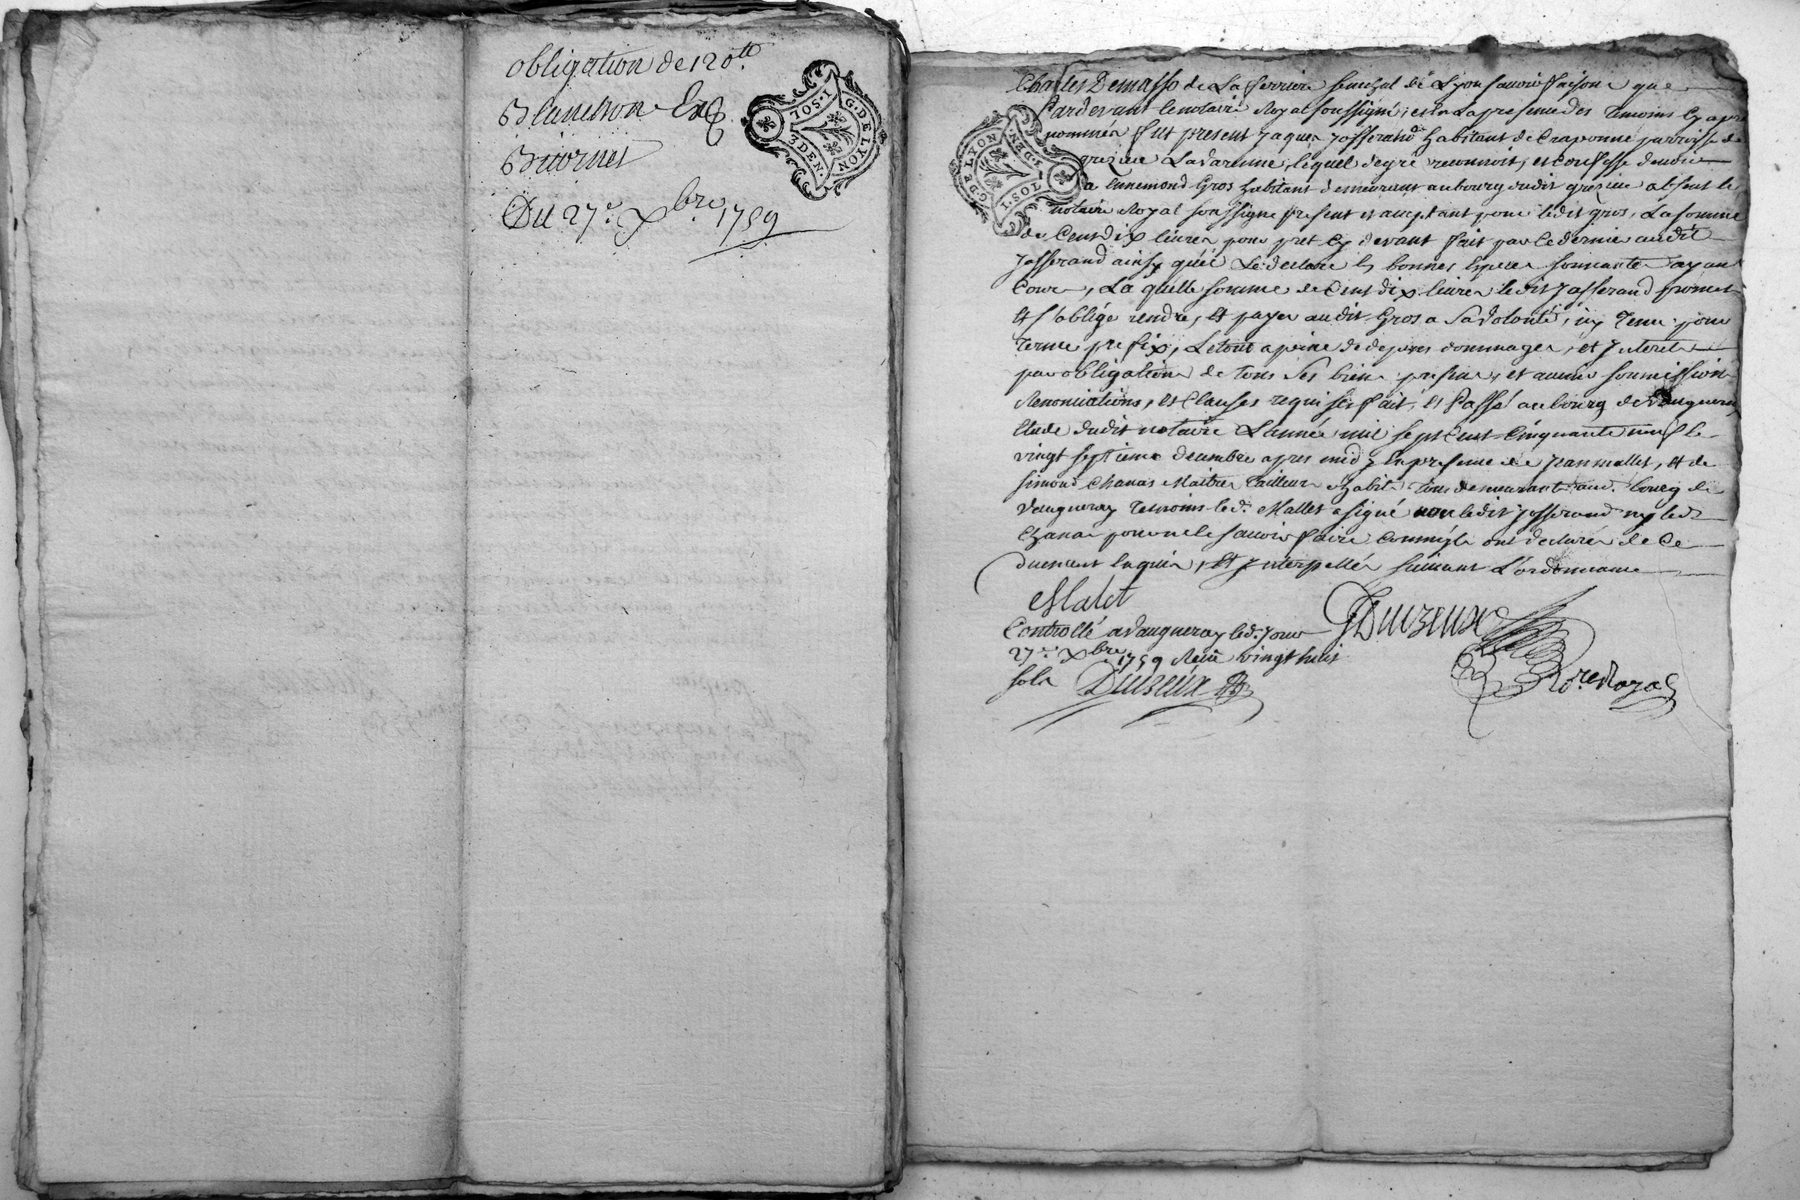 obligation de 120 tt
Blanchon
Du 27e. Xbre 1759
G. DE LYON
1. SOL
3 DEN.
Charles Demasso de La ferriere senechal de Lyon savoir faisons que
Pardevant le notaire Royal soussigné, et en la presence des temoins cy apres
nommés fut present Jaques Josserand habitant de Craponne parroisse de
grezieu Lavarenne, lequel degré reconnoit, et confesse devoir
a Ennemond Gros habitant demeurant au bourg dudit grezieu absent le
notaire Royal soussigné present et acceptant pour ledit gros, La somme
de Cent dix livres pour pret cy devant fait par ce dernier audit
Josserand ainsy qu'il Le declare en bonnes especes sonnantes ayant
Cour, La quelle somme de Cent dix livres ledit Josserand promet
et s'oblige rendre, et payer audit Gros a Sa volonté,
terme prefix, Le tout a peine de depens dommages, et Interets
par obligation de tous Ses biens presens, et avenir soumissions
Renonciations, et Clauses requises fait, et Passé au bourg de Vaugneray
Etude dudit notaire L'année mil sept Cent Cinquante neuf le
vingt septieme decembre apres midy En presence de Jean mallet, et de
simond Chanas Maitre Tailleur habits tous demeurants aud. bourg de
Vaugneray Temoins le d. Mallet a signé non ledit Josserand ny led.
Chanas pour ne le savoir faire Comm'ils ont declarés de Ce
duement Enquis, et Interpellés suivant L'ordonnance
Malet
Controllé a Vaugneray led. Jour
27e. Xbre 1759 Reçu vingt huit
sols
Nre Royal
G. DE LYON
3. DEN.
1. SOL